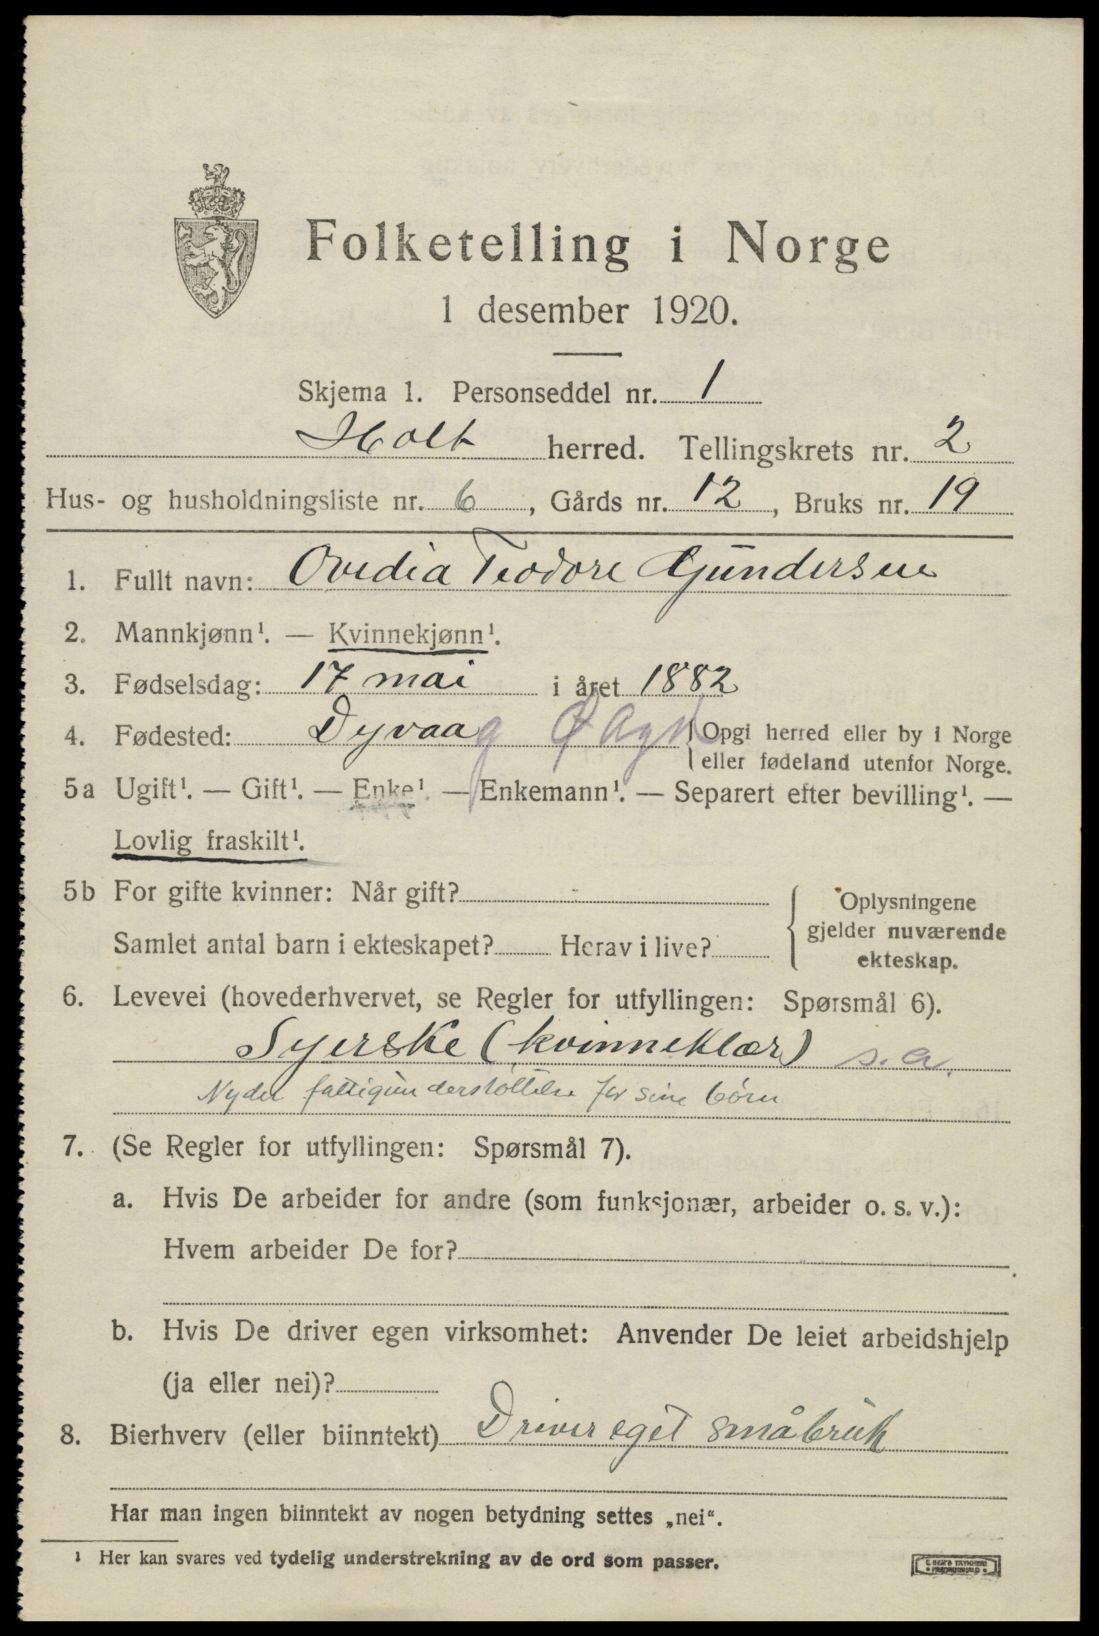 Folketelling i Norge
1 desember 1920.
Skjema 1. Personseddel nr. 1
Holt herred. Tellingskrets nr. 2
Hus- og husholdningsliste nr. 6, Gårds nr. 12, Bruks nr. 19
1. Fullt navn: Ovedia Teodore Gundersen
2. Mannkjønn¹. — Kvinnekjønn¹.
3. Fødselsdag: 17 mai i året 1882
4. Fødested: Dyvaag Ø Agd Opgi herred eller by i Norge
eller fødeland utenfor Norge.
5a Ugift¹. — Gift¹. — Enke¹. — Enkemann¹. — Separert efter bevilling¹. —
Lovlig fraskilt¹.
5b For gifte kvinner: Når gift?
Samlet antal barn i ekteskapet? Herav i live?
Oplysningene
gjelder nuværende
ekteskap.
6. Levevei (hovederhvervet, se Regler for utfyllingen: Spørsmål 6).
Syerske (kvinneklær) s.a.
Nyder fattigunderstøttelse for sine børn
7. (Se Regler for utfyllingen: Spørsmål 7).
a. Hvis De arbeider for andre (som funksjonær, arbeider o. s. v.):
Hvem arbeider De for?
b. Hvis De driver egen virksomhet: Anvender De leiet arbeidshjelp
(ja eller nei)?
8. Bierhverv (eller biinntekt) Driver eget småbruk
Har man ingen biinntekt av nogen betydning settes „nei“.
¹ Her kan svares ved tydelig understrekning av de ord som passer.